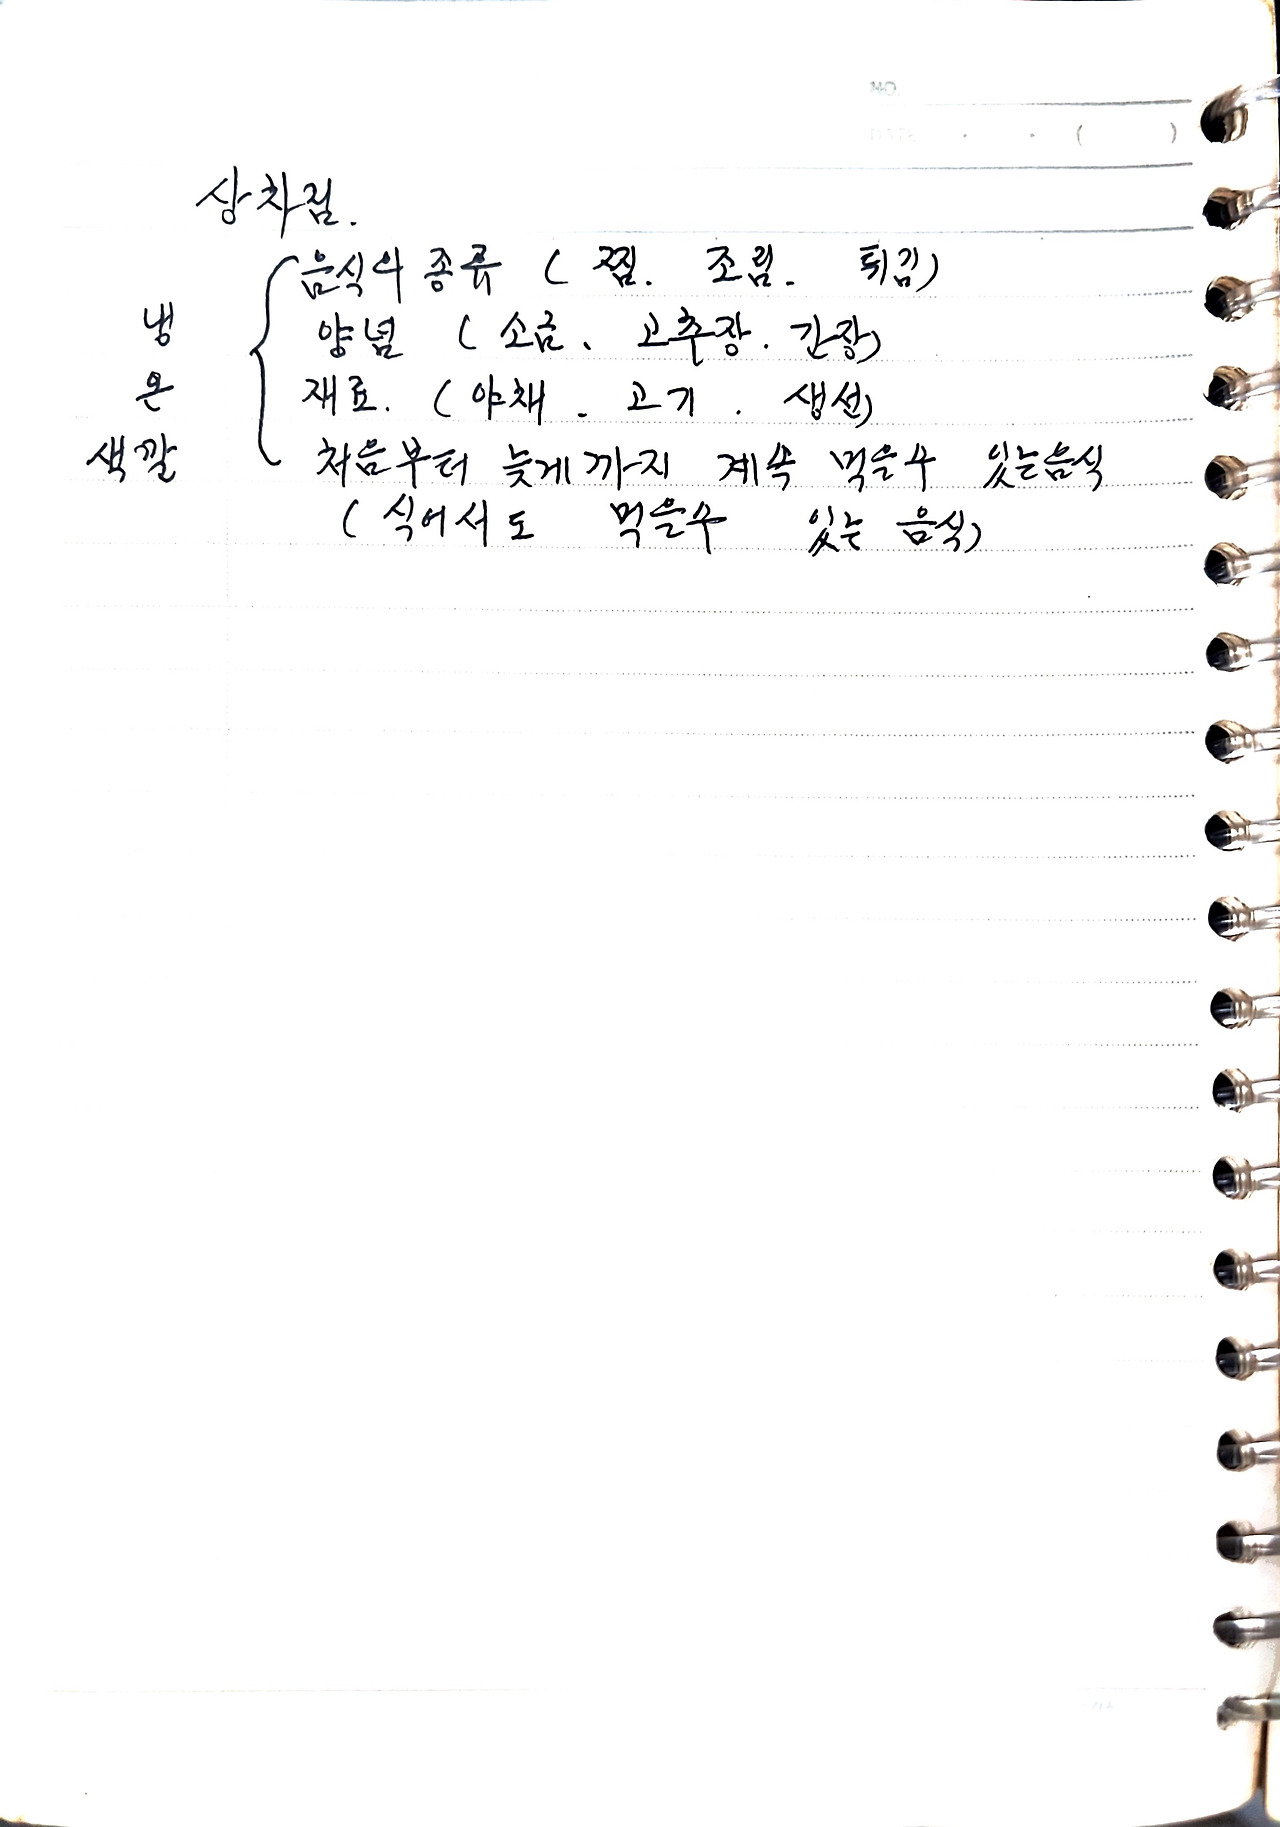 NO.
DATE . . ( )
상차림.
음식의 종류 ( 찜. 조림. 튀김)
냉 양념 ( 소금. 고추장. 간장)
온 재료. ( 야채. 고기. 생선)
색깔 처음부터 늦게까지 계속 먹을수 있는음식
( 식어서도 먹을수 있는 음식)